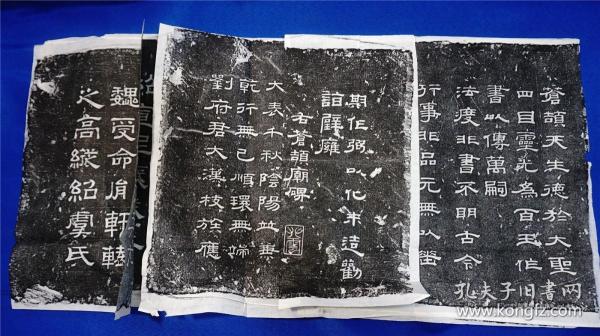 蒼頡天生德於大聖
四目靈光為百王作
書以傳萬嗣
法度非書不明古今
行事非品元無以
期 弼以化未造勸
詣辟雍
右蒼頡廟碑
大表千秋陰陽並垂
乾行無已順環無端
劉府君大漢枝族應
魏受命胤軒轅
之高縱紹虞氏
孔夫子旧书网
www.kongfz.com